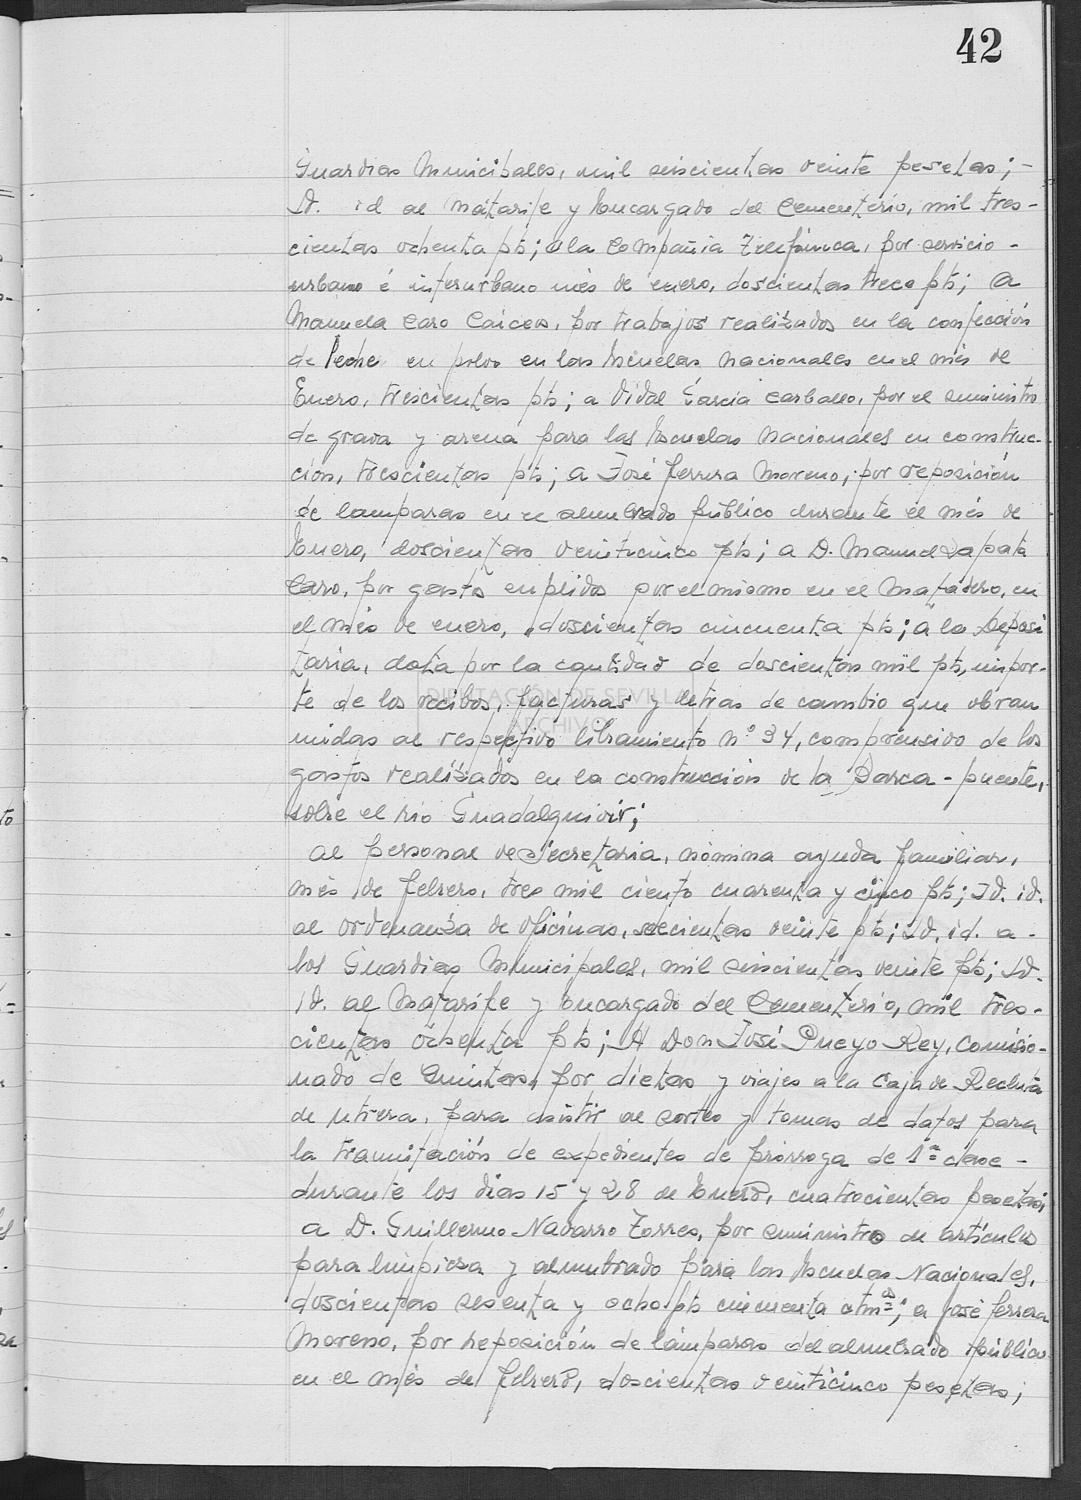 42
Guardias Municipales, mil seiscientas veinte pesetas; -
Id. id al Matarife y Encargado del Cementerio, mil tres-
cientas ochenta pts; a la Compañia Telefónica, por servicio -
urbano é interurbano més de enero, doscientas trece pts; a
Manuela Caro Caicea, por trabajos realizados en la confección
de leche en polvo en las Escuelas Nacionales en el més de
Enero, trescientas pts; a Vidal García Carballo, por el suministro
de grava y arena para las Escuelas Nacionales en construc-
ción, trescientas pts; a José Ferrera Moreno, por reposición
de lamparas en el alumbrado público durante el més de
Enero, doscientas veinticinco pts; a D. Manuel Zapata
Caro, por gastos suplidos por el mismo en el Matadero, en
el més de enero, doscientas cincuenta pts; a la Deposi
taria, data por la cantidad de doscientas mil pts, impor-
te de los recibos, facturas y letras de cambio que obran
DIPUTACIÓN DE SEVILLA
ARCHIVO
unidas al respectivo libramiento nº 34, comprensivo de los
gastos realizados en la construcción de la Barca-puente,
sobre el rio Guadalquivir;
al personal de Secretaria, nómina ayuda familiar,
més de febrero, tres mil ciento cuarenta y cinco pts; Id. id.
al ordenanza de oficinas, setecientas veinte pts; Id. id. a -
los Guardias Municipales, mil seiscientas veinte pts; Id.
id. al Matarife y Encargado del Cementerio, mil tres-
cientas ochenta pts; A Don José Pueyo Rey, Comisio-
nado de Quintas, por dietas y viajes a la Caja de Recluta
de Utrera, para asistir al sorteo y tomas de datos para
la tramitación de expedientes de prórroga de 1ª clase -
durante los dias 15 y 28 de Enero, cuatrocientas pesetas;
a D. Guillermo Navarro Torres, por suministro de artículos
para limpieza y alumbrado para las Escuelas Nacionales,
doscientas sesenta y ocho pts cincuenta ctmos; a José Ferrera
Moreno, por reposición de lámparas del alumbrado público
en el més de febrero, doscientas veinticinco pesetas;